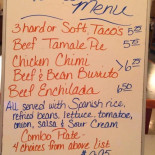 Menu
3 hard or Soft Tacos 6.25
Beef Tamale Pie 5.25
Chicken Chimi
Beef & Bean Burrito > 6.25
Beef Enchilada 6.50
All served with Spanish rice,
refried beans, lettuce, tomatoes,
onion, salsa & Sour Cream
Combo Plate -
4 choices from above list